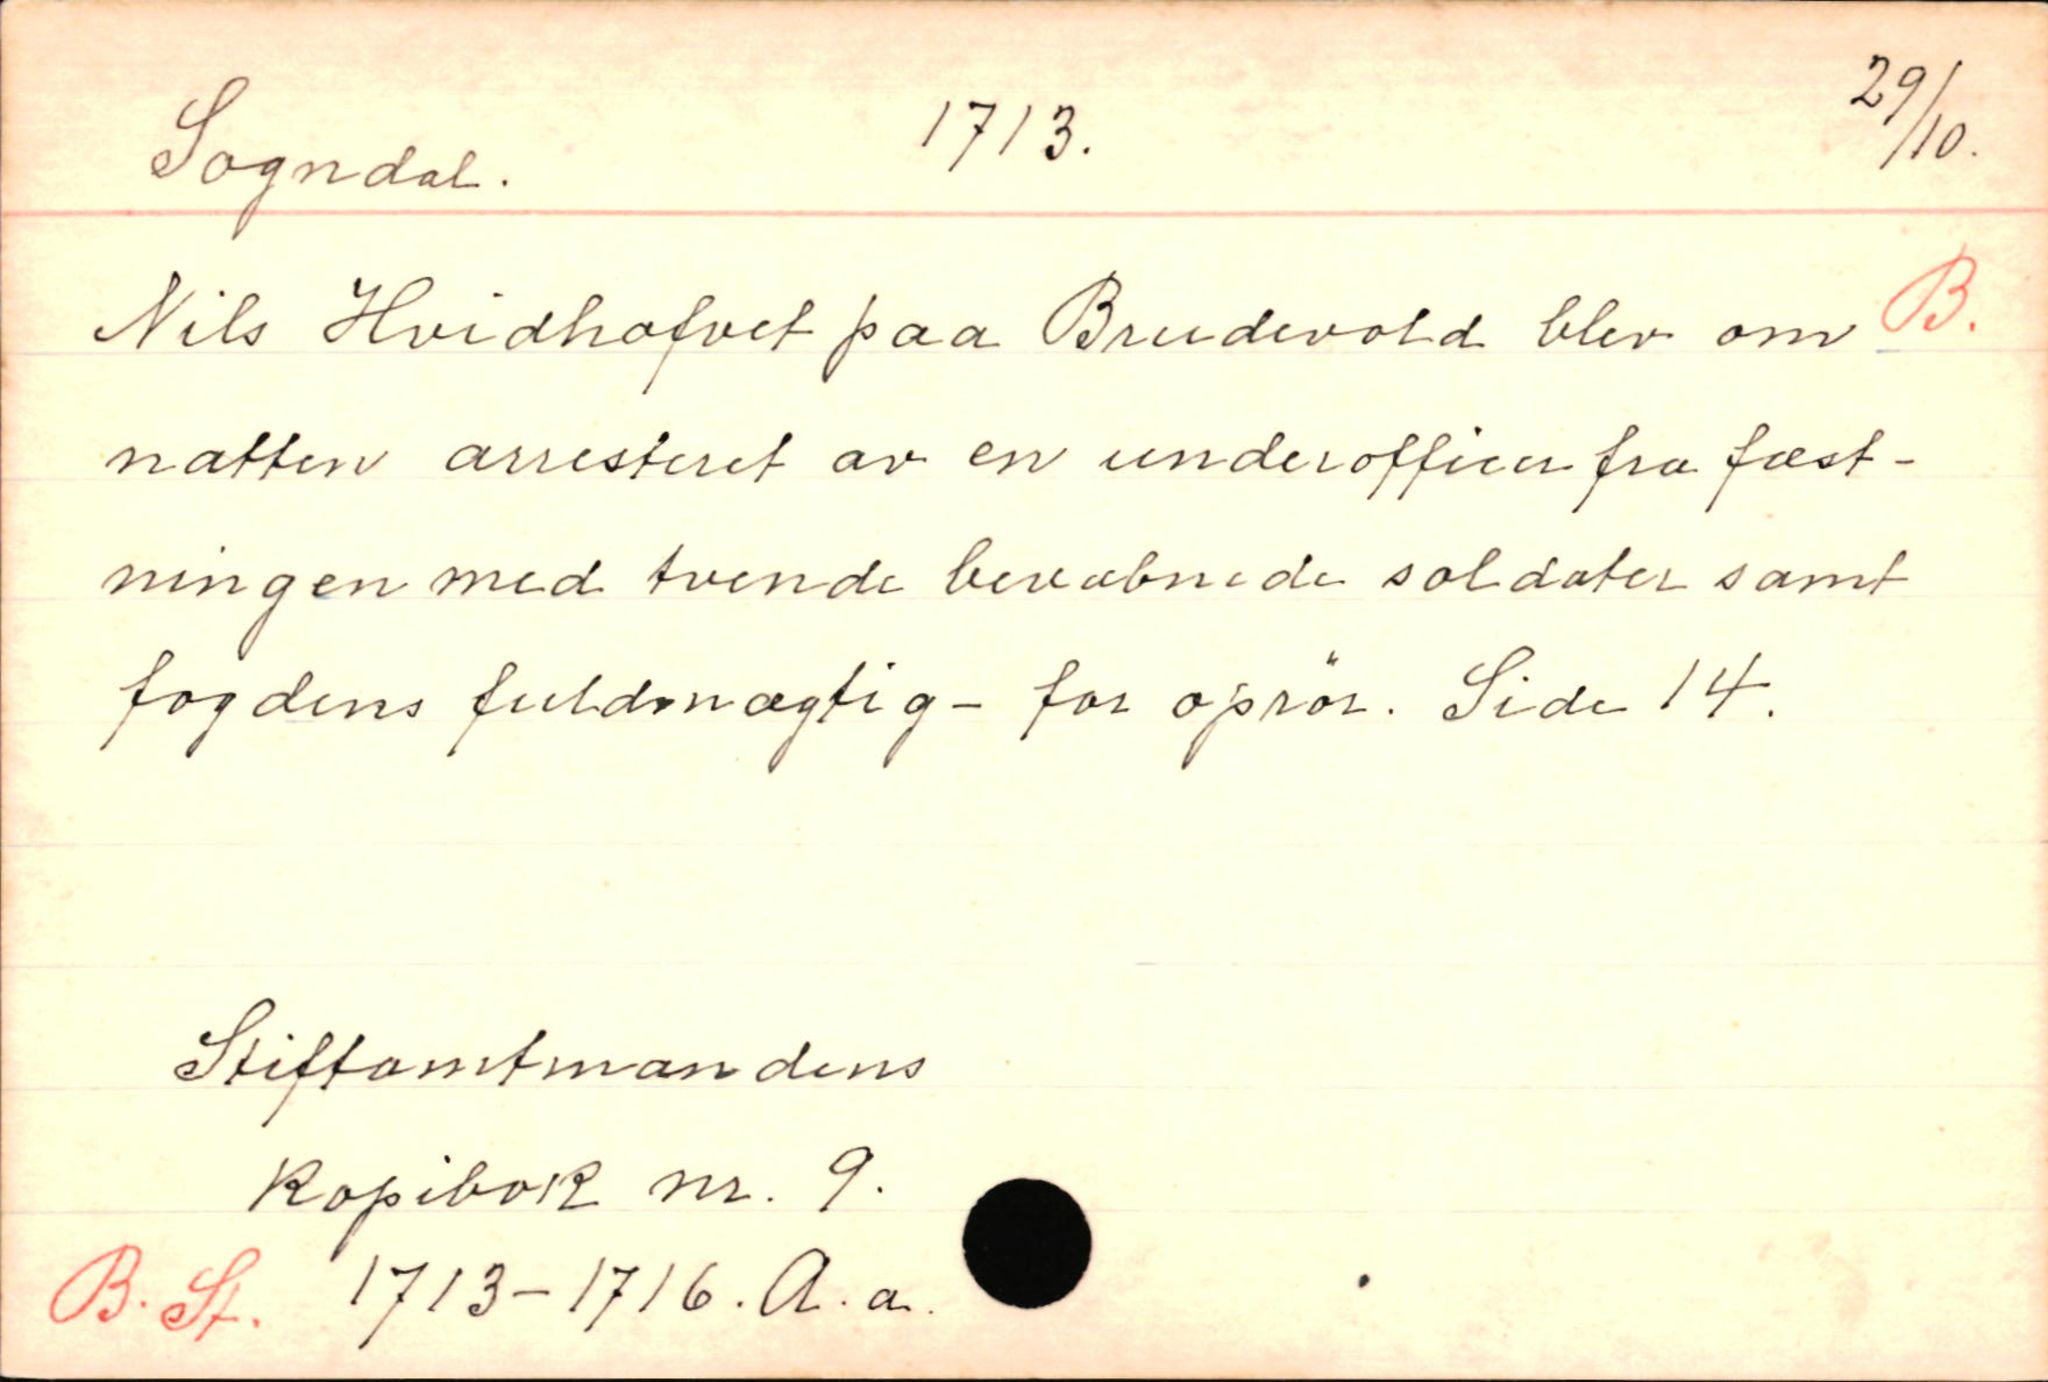 Sogndal. 1713. 29/10.
Nils Hvidhofvet paa Brudevold blev om B.
natten arresteret av en underofficer fra fæst-
ningen med tvende bevæbnede soldater samt
fogdens fuldmægtig - for oprör. Side 14.
Stiftamtmandens
Kopibok nr. 9.
B. St. 1713-1716. A. a.